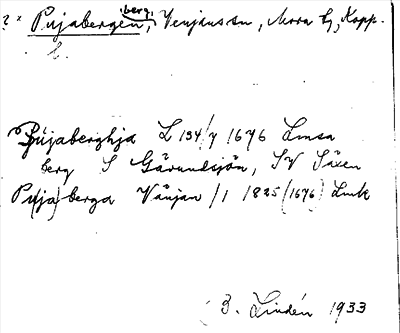 ? × Pujabergen, berg, Venjans sn, Mora tg, Kopp.
l.
Pujaberghja L 134/7 1676 Lmsa
berg S Gärundsjön, SV Säxen
Pu(ja)berga Vänjan /1 1825 (1676) Lmk
B. Lindén 1933